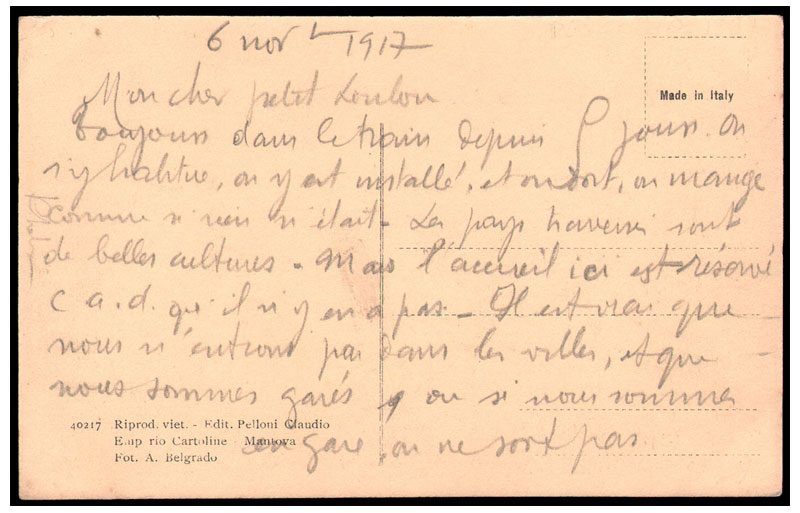 6 nov 1917
Made in Italy
Mon cher petit Loulou
Toujours dans le train depuis 5 jours. On
s'y habitue, on y est installé, et on dort, on mange
comme si rien n'était - Les pays traversés sont
de belles cultures - Mais l'accueil ici est réservé
c a.d. qu'il n'y en a pas - Il est vrai que
nous n'entrons pas dans les villes, et que
nous sommes garés, ou si nous sommes
en gare, on ne sort pas
40217 Riprod. viet. - Edit. Pelloni Claudio
Emp rio Cartoline - Mantova
Fot. A. Belgrado